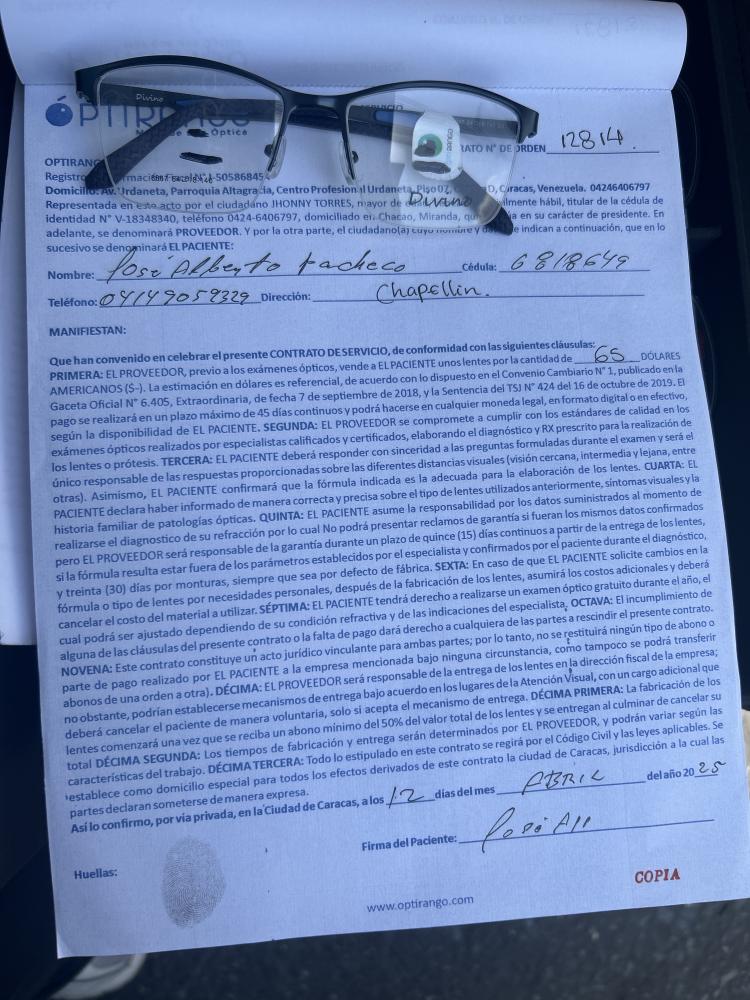 ÓPTIRANGO
Divino
Óptica
SERVICIO
RATO N° DE ORDEN 12814
Divino
OPTIRANG
Registro
Domicilio: Av. Urdaneta, Parroquia Altagracia, Centro Profesional Urdaneta, Piso 02, Caracas, Venezuela. 04246406797
Representada en este acto por el ciudadano JHONNY TORRES, mayor de ilmente hábil, titular de la cédula de
identidad N° V-18348340, teléfono 0424-6406797, domiciliado en Chacao, Miranda, qu a en su carácter de presidente. En
adelante, se denominará PROVEEDOR. Y por la otra parte, el ciudadano(a) cuyo nombre y dat se indican a continuación, que en lo
sucesivo se denominará EL PACIENTE:
Nombre: José Alberto Pacheco Cédula: 6818649
Teléfono: 04149059329 Dirección: Chapellin.
MANIFIESTAN:
Que han convenido en celebrar el presente CONTRATO DE SERVICIO, de conformidad con las siguientes cláusulas:
PRIMERA: EL PROVEEDOR, previo a los exámenes ópticos, vende a EL PACIENTE unos lentes por la cantidad de 65 DÓLARES
AMERICANOS ($-). La estimación en dólares es referencial, de acuerdo con lo dispuesto en el Convenio Cambiario N° 1, publicado en la
Gaceta Oficial N° 6.405, Extraordinaria, de fecha 7 de septiembre de 2018, y la Sentencia del TSJ N° 424 del 16 de octubre de 2019. El
pago se realizará en un plazo máximo de 45 días continuos y podrá hacerse en cualquier moneda legal, en formato digital o en efectivo,
según la disponibilidad de EL PACIENTE. SEGUNDA: EL PROVEEDOR se compromete a cumplir con los estándares de calidad en los
exámenes ópticos realizados por especialistas calificados y certificados, elaborando el diagnóstico y RX prescrito para la realización de
los lentes o prótesis. TERCERA: EL PACIENTE deberá responder con sinceridad a las preguntas formuladas durante el examen y será el
único responsable de las respuestas proporcionadas sobre las diferentes distancias visuales (visión cercana, intermedia y lejana, entre
otras). Asimismo, EL PACIENTE confirmará que la fórmula indicada es la adecuada para la elaboración de los lentes. CUARTA: EL
PACIENTE declara haber informado de manera correcta y precisa sobre el tipo de lentes utilizados anteriormente, síntomas visuales y la
historia familiar de patologías ópticas. QUINTA: EL PACIENTE asume la responsabilidad por los datos suministrados al momento de
realizarse el diagnostico de su refracción por lo cual No podrá presentar reclamos de garantía si fueran los mismos datos confirmados
pero EL PROVEEDOR será responsable de la garantía durante un plazo de quince (15) días continuos a partir de la entrega de los lentes,
si la fórmula resulta estar fuera de los parámetros establecidos por el especialista y confirmados por el paciente durante el diagnóstico,
y treinta (30) días por monturas, siempre que sea por defecto de fábrica. SEXTA: En caso de que EL PACIENTE solicite cambios en la
fórmula o tipo de lentes por necesidades personales, después de la fabricación de los lentes, asumirá los costos adicionales y deberá
cancelar el costo del material a utilizar. SÉPTIMA: EL PACIENTE tendrá derecho a realizarse un examen óptico gratuito durante el año, el
cual podrá ser ajustado dependiendo de su condición refractiva y de las indicaciones del especialista. OCTAVA: El incumplimiento de
alguna de las cláusulas del presente contrato o la falta de pago dará derecho a cualquiera de las partes a rescindir el presente contrato.
NOVENA: Este contrato constituye un acto jurídico vinculante para ambas partes; por lo tanto, no se restituirá ningún tipo de abono o
parte de pago realizado por EL PACIENTE a la empresa mencionada bajo ninguna circunstancia, como tampoco se podrá transferir
abonos de una orden a otra). DÉCIMA: EL PROVEEDOR será responsable de la entrega de los lentes en la dirección fiscal de la empresa;
no obstante, podrían establecerse mecanismos de entrega bajo acuerdo en los lugares de la Atención Visual, con un cargo adicional que
deberá cancelar el paciente de manera voluntaria, solo si acepta el mecanismo de entrega. DÉCIMA PRIMERA: La fabricación de los
lentes comenzará una vez que se reciba un abono mínimo del 50% del valor total de los lentes y se entregan al culminar de cancelar su
total DÉCIMA SEGUNDA: Los tiempos de fabricación y entrega serán determinados por EL PROVEEDOR, y podrán variar según las
características del trabajo. DÉCIMA TERCERA: Todo lo estipulado en este contrato se regirá por el Código Civil y las leyes aplicables. Se
establece como domicilio especial para todos los efectos derivados de este contrato la ciudad de Caracas, jurisdicción a la cual las
partes declaran someterse de manera expresa.
Así lo confirmo, por vía privada, en la Ciudad de Caracas, a los 12 días del mes ABRIL del año 2025
Firma del Paciente: José Al
Huellas:
COPIA
www.optirango.com